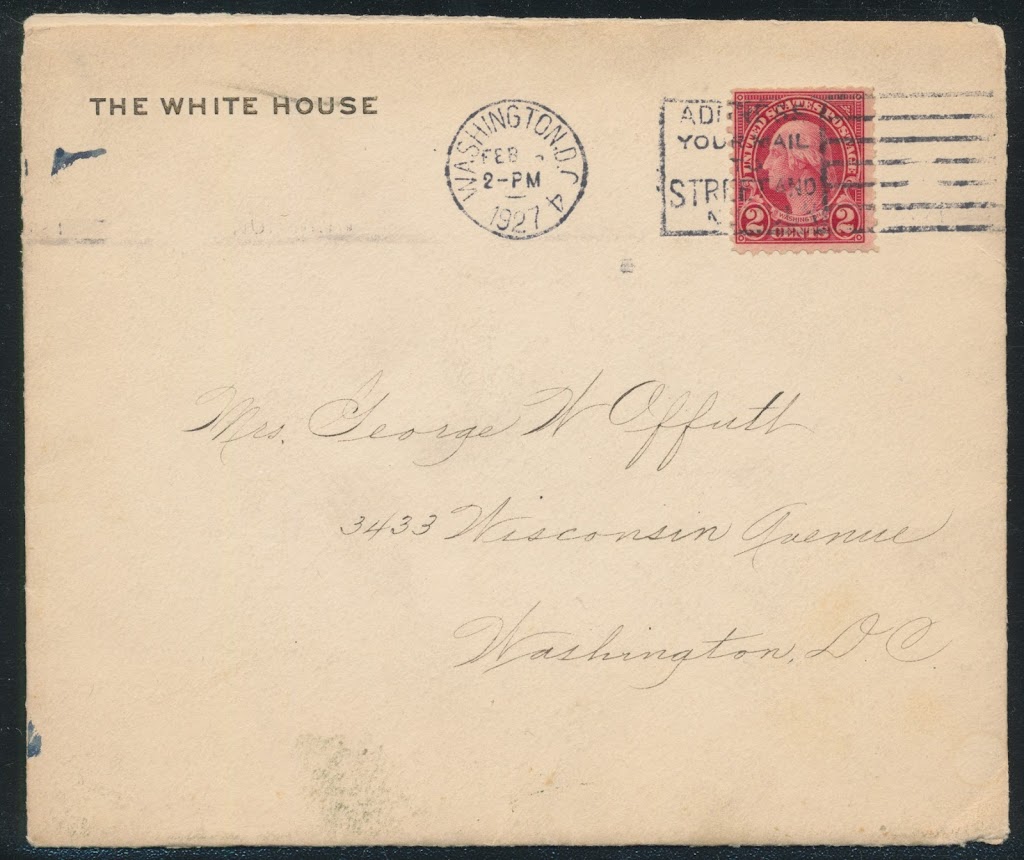 THE WHITE HOUSE
WASHINGTON, D.C. 4
FEB
2-PM
1927
YOUR MAIL
TO
STREET AND
UNITED STATES POSTAGE
WASHINGTON
2 CENTS 2
Mrs. George W Offutt
3433 Wisconsin Avenue
Washington, D C.